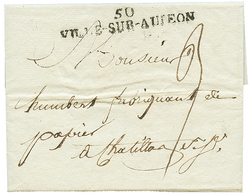 50
VILLE-SUR-AUJEON
Monsieur
humbert fabriquant de
papier
a chatillon s. Sne
3